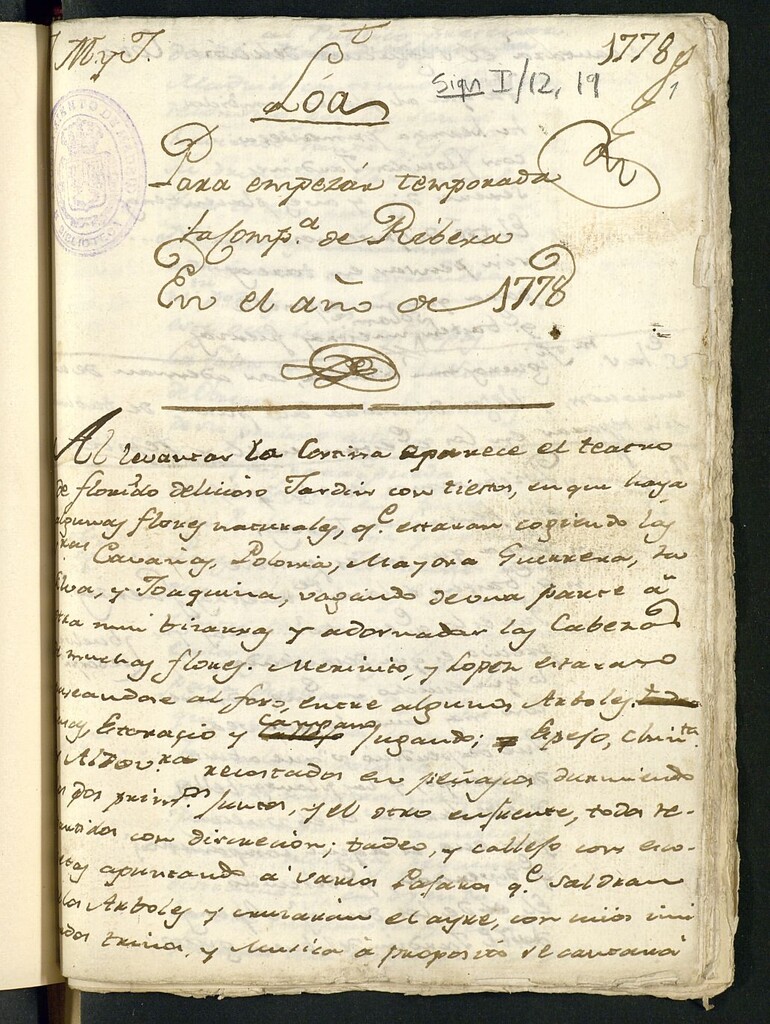 M y T. 1778
Sign I/12, 19 1
Loa
Para empezár temporada
la Comp.ª de Ribera
En el año de 1778
Al levantar la Cortina aparece el teatro
de florido delicioso Jardin con tiestos, en que haya
algunas flores naturales, q.e estaran cogiendo las
Polonia, Mayora Guerrera,
y Joaquina, vagando de una parte à
mui bizarras y adornadas las Cabezas
muchas flores. Merinito, y Lopez estaran
paseandose al foro, entre algunos Arboles.
y Campano jugando; Espejo, Chin.ta
recostados en peñascos durmiendo
juntos, y el otro enfrente, todos re-
partidos con discrecion; tadeo, y Callejo con esco-
petas apuntando à varios Pajaros q.e saldran
Arboles y cruzarán el ayre, con
trinos, y Musica à proposito se cantará